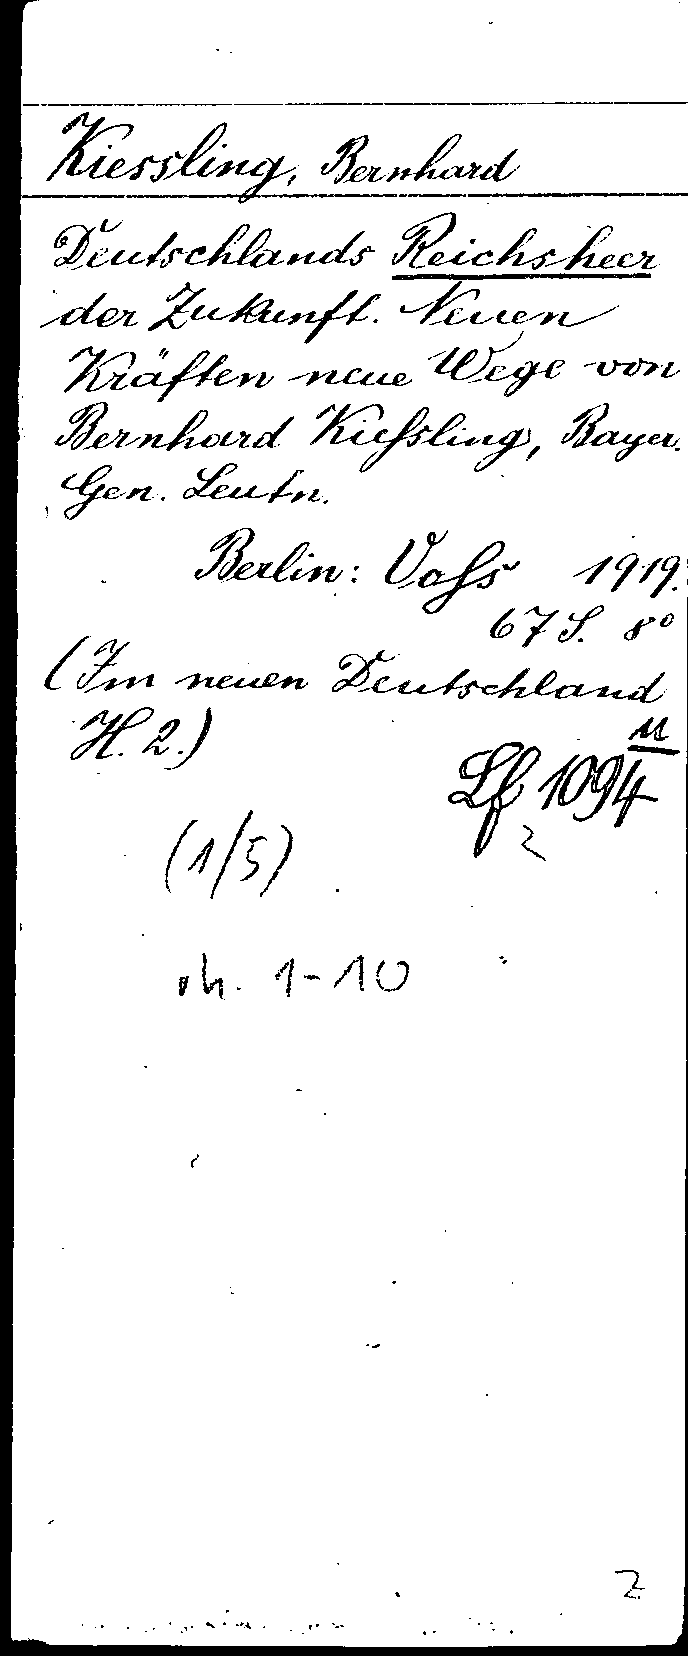 Kiessling, Bernhard
Deutschlands Reichsheer
der Zukunft. Neuen
Kräften neue Wege von
Bernhard Kießling, Bayer.
Gen. Leutn.
Berlin: Voß 1919.
67 S. 8°
(Im neuen Deutschland
H. 2.)
Lf 1094
2
(1/5)
rh. 1-10
Z